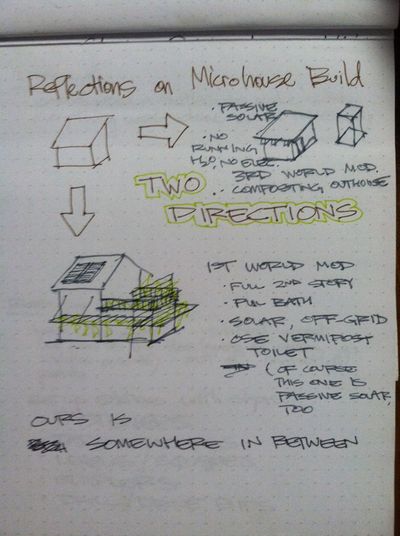 Reflections on Microhouse Build
· PASSIVE
SOLAR
· NO
RUNNING
H2O, NO ELEC.
· 3RD WORLD MOD.
· COMPOSTING OUTHOUSE
TWO
DIRECTIONS
1ST WORLD MOD
· FULL 2ND STORY
· FULL BATH
· SOLAR, OFF-GRID
· USE VERMIPOST
TOILET
(OF COURSE
THIS ONE IS
PASSIVE SOLAR,
TOO
OURS IS
SOMEWHERE IN BETWEEN